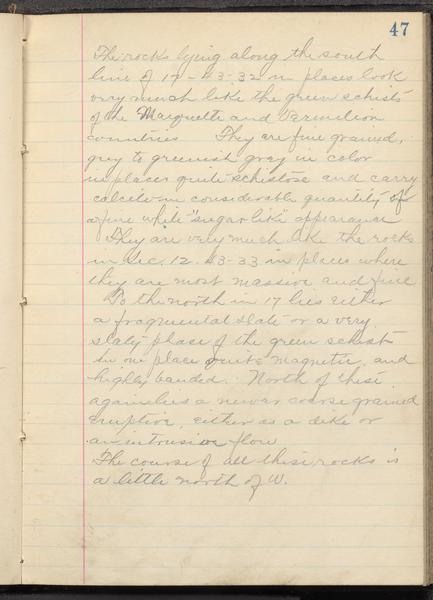 47
The rocks lying along the south
line of 17 - 43-32 in places look
very much like the green schists
of the Marquette and Vermilion
countries They are fine grained,
grey to greenish gray in color
in places quite schistose and carry
calcite in considerable quantity of
a fine white "sugar like" appearance
They are very much like the rocks
in Sec. 12. 43-33 in places where
they are most massive and fine
To the north in 17 lies either
a fragmental slate or a very
slaty phase of the green schist
in one place quite magnetic and
highly banded. North of these
again lies a newer coarse grained
eruptive, either as a dike or
an intrusive flow
The course of all these rocks is
a little north of W.